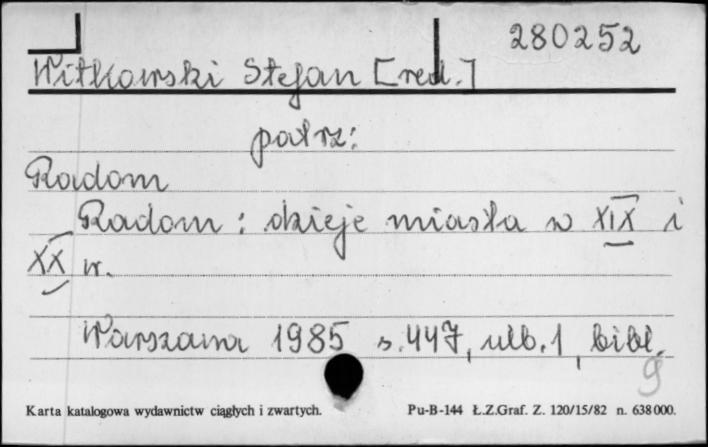 280252
Witkowski Stefan [red.]
patrz:
Radom
Radom : dzieje miasta w XIX i
XX w.
Warszawa 1985 s. 447, nlb. 1, bibl.
9
Karta katalogowa wydawnictw ciągłych i zwartych. Pu-B-144 Ł.Z.Graf. Z. 120/15/82 n. 638000.